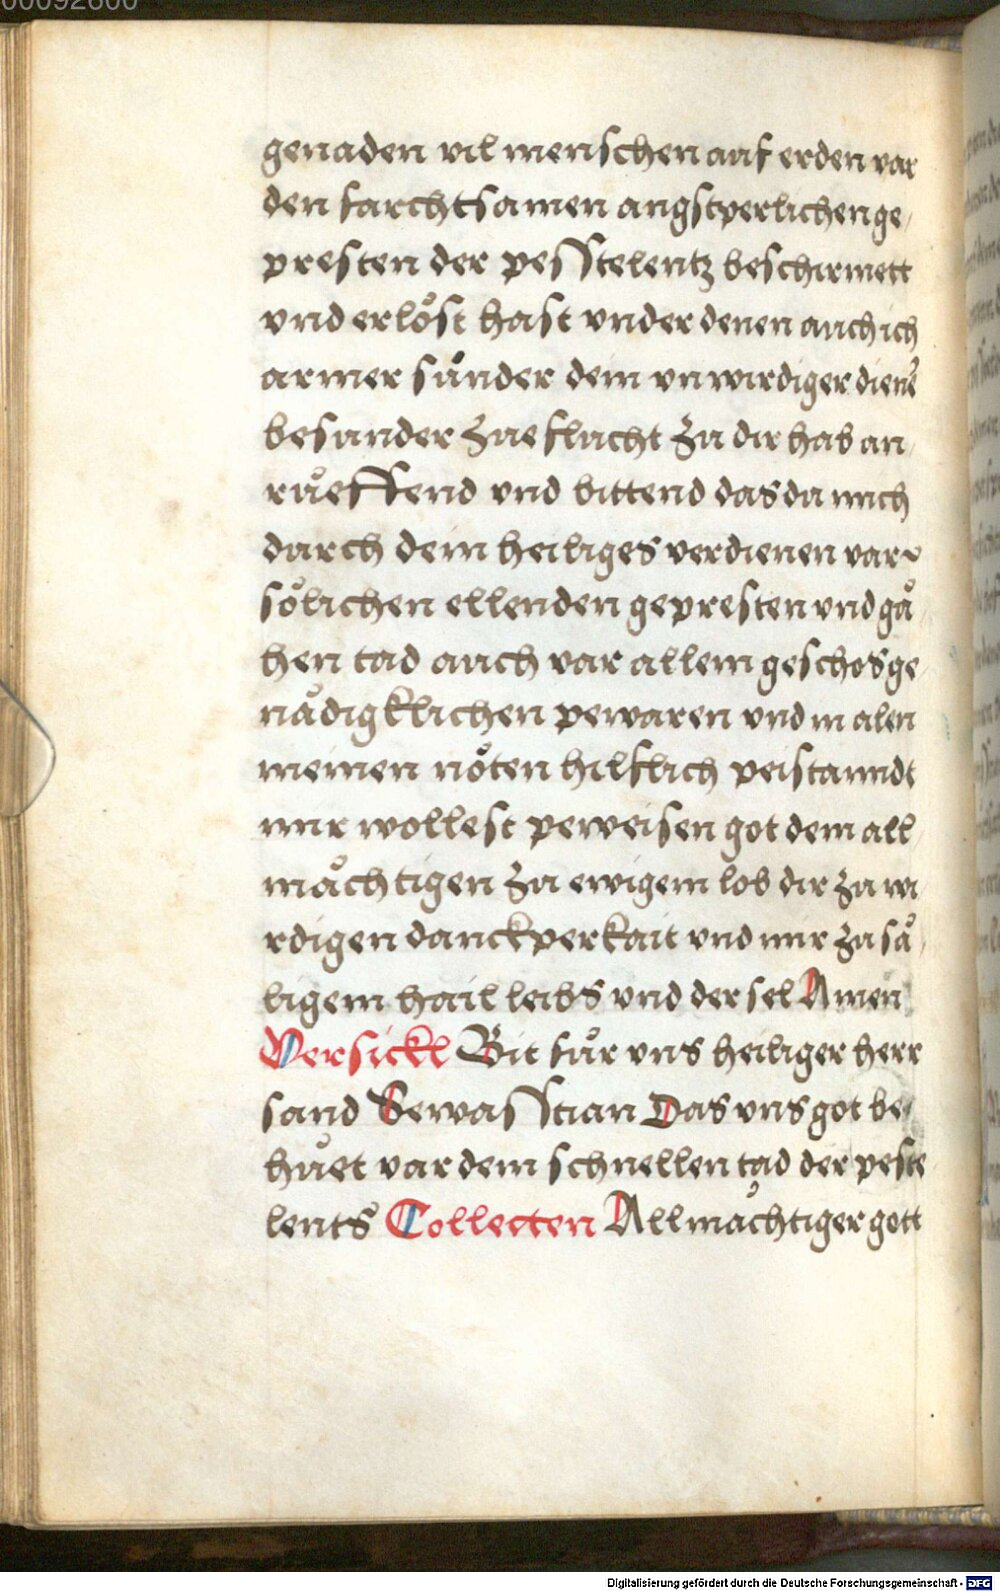 00092600
genaden vil menschen auf erden var
den farchtsamen angstperlichen ge/
presten der pesstelentz beschirmett
vnd erlöst hast vnder denen auch ich
armer sůnder dein vnwirdiger diene᷑
besunder Zue flucht Zu dir hab an/
růeffend vnd bittend das du mich
durch dein heiliges verdienen var
sölichen ellenden gepresten vnd gå/
hen tad auch var allem geschos ge/
nådigklichen pewaren vnd in alen
meinen nöten hilflich peistanndt
mir wollest peweisen got dem all/
måchtigen Zu ewigem lob dir Zu wi/
rdigen danckperkait vnd mir Zu så/
ligem hail leibs vnd der sel Amen
Versickl Bit fůr vns heiliger herr
sand Sewasstian Das vns got be/
hůet var dem schnellen tad der peste/
lents Collecten Allmåchtiger gott
Digitalisierung gefördert durch die Deutsche Forschungsgemeinschaft - DFG